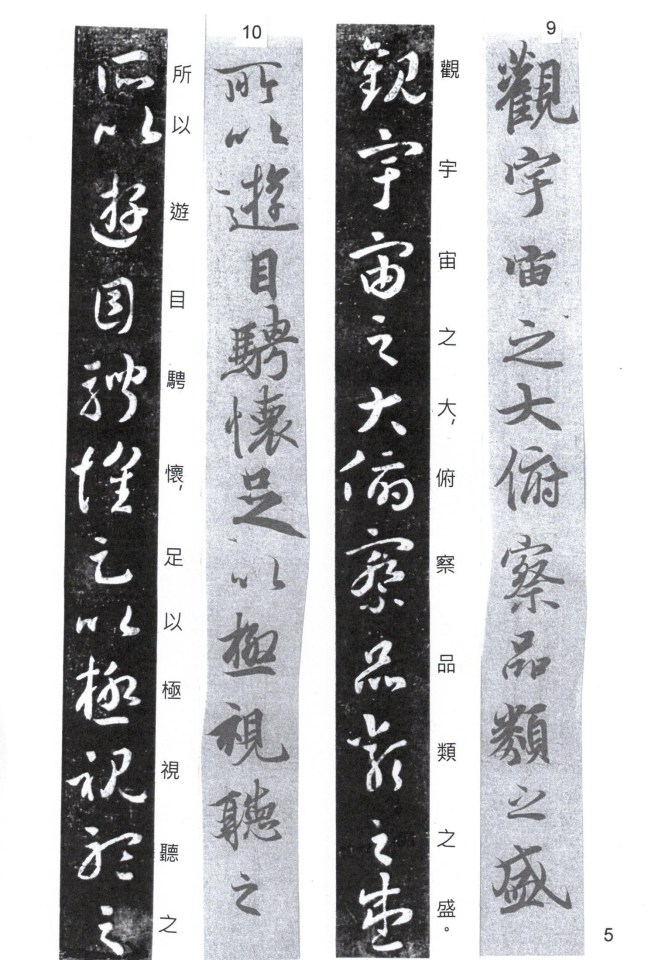 9
觀宇宙之大俯察品類之盛
觀宇宙之大，俯察品類之盛。
觀宇宙之大俯察品類之盛
10
所以遊目騁懷足以極視聽之
所以遊目騁懷，足以極視聽之
所以遊目騁懷足以極視聽之
5